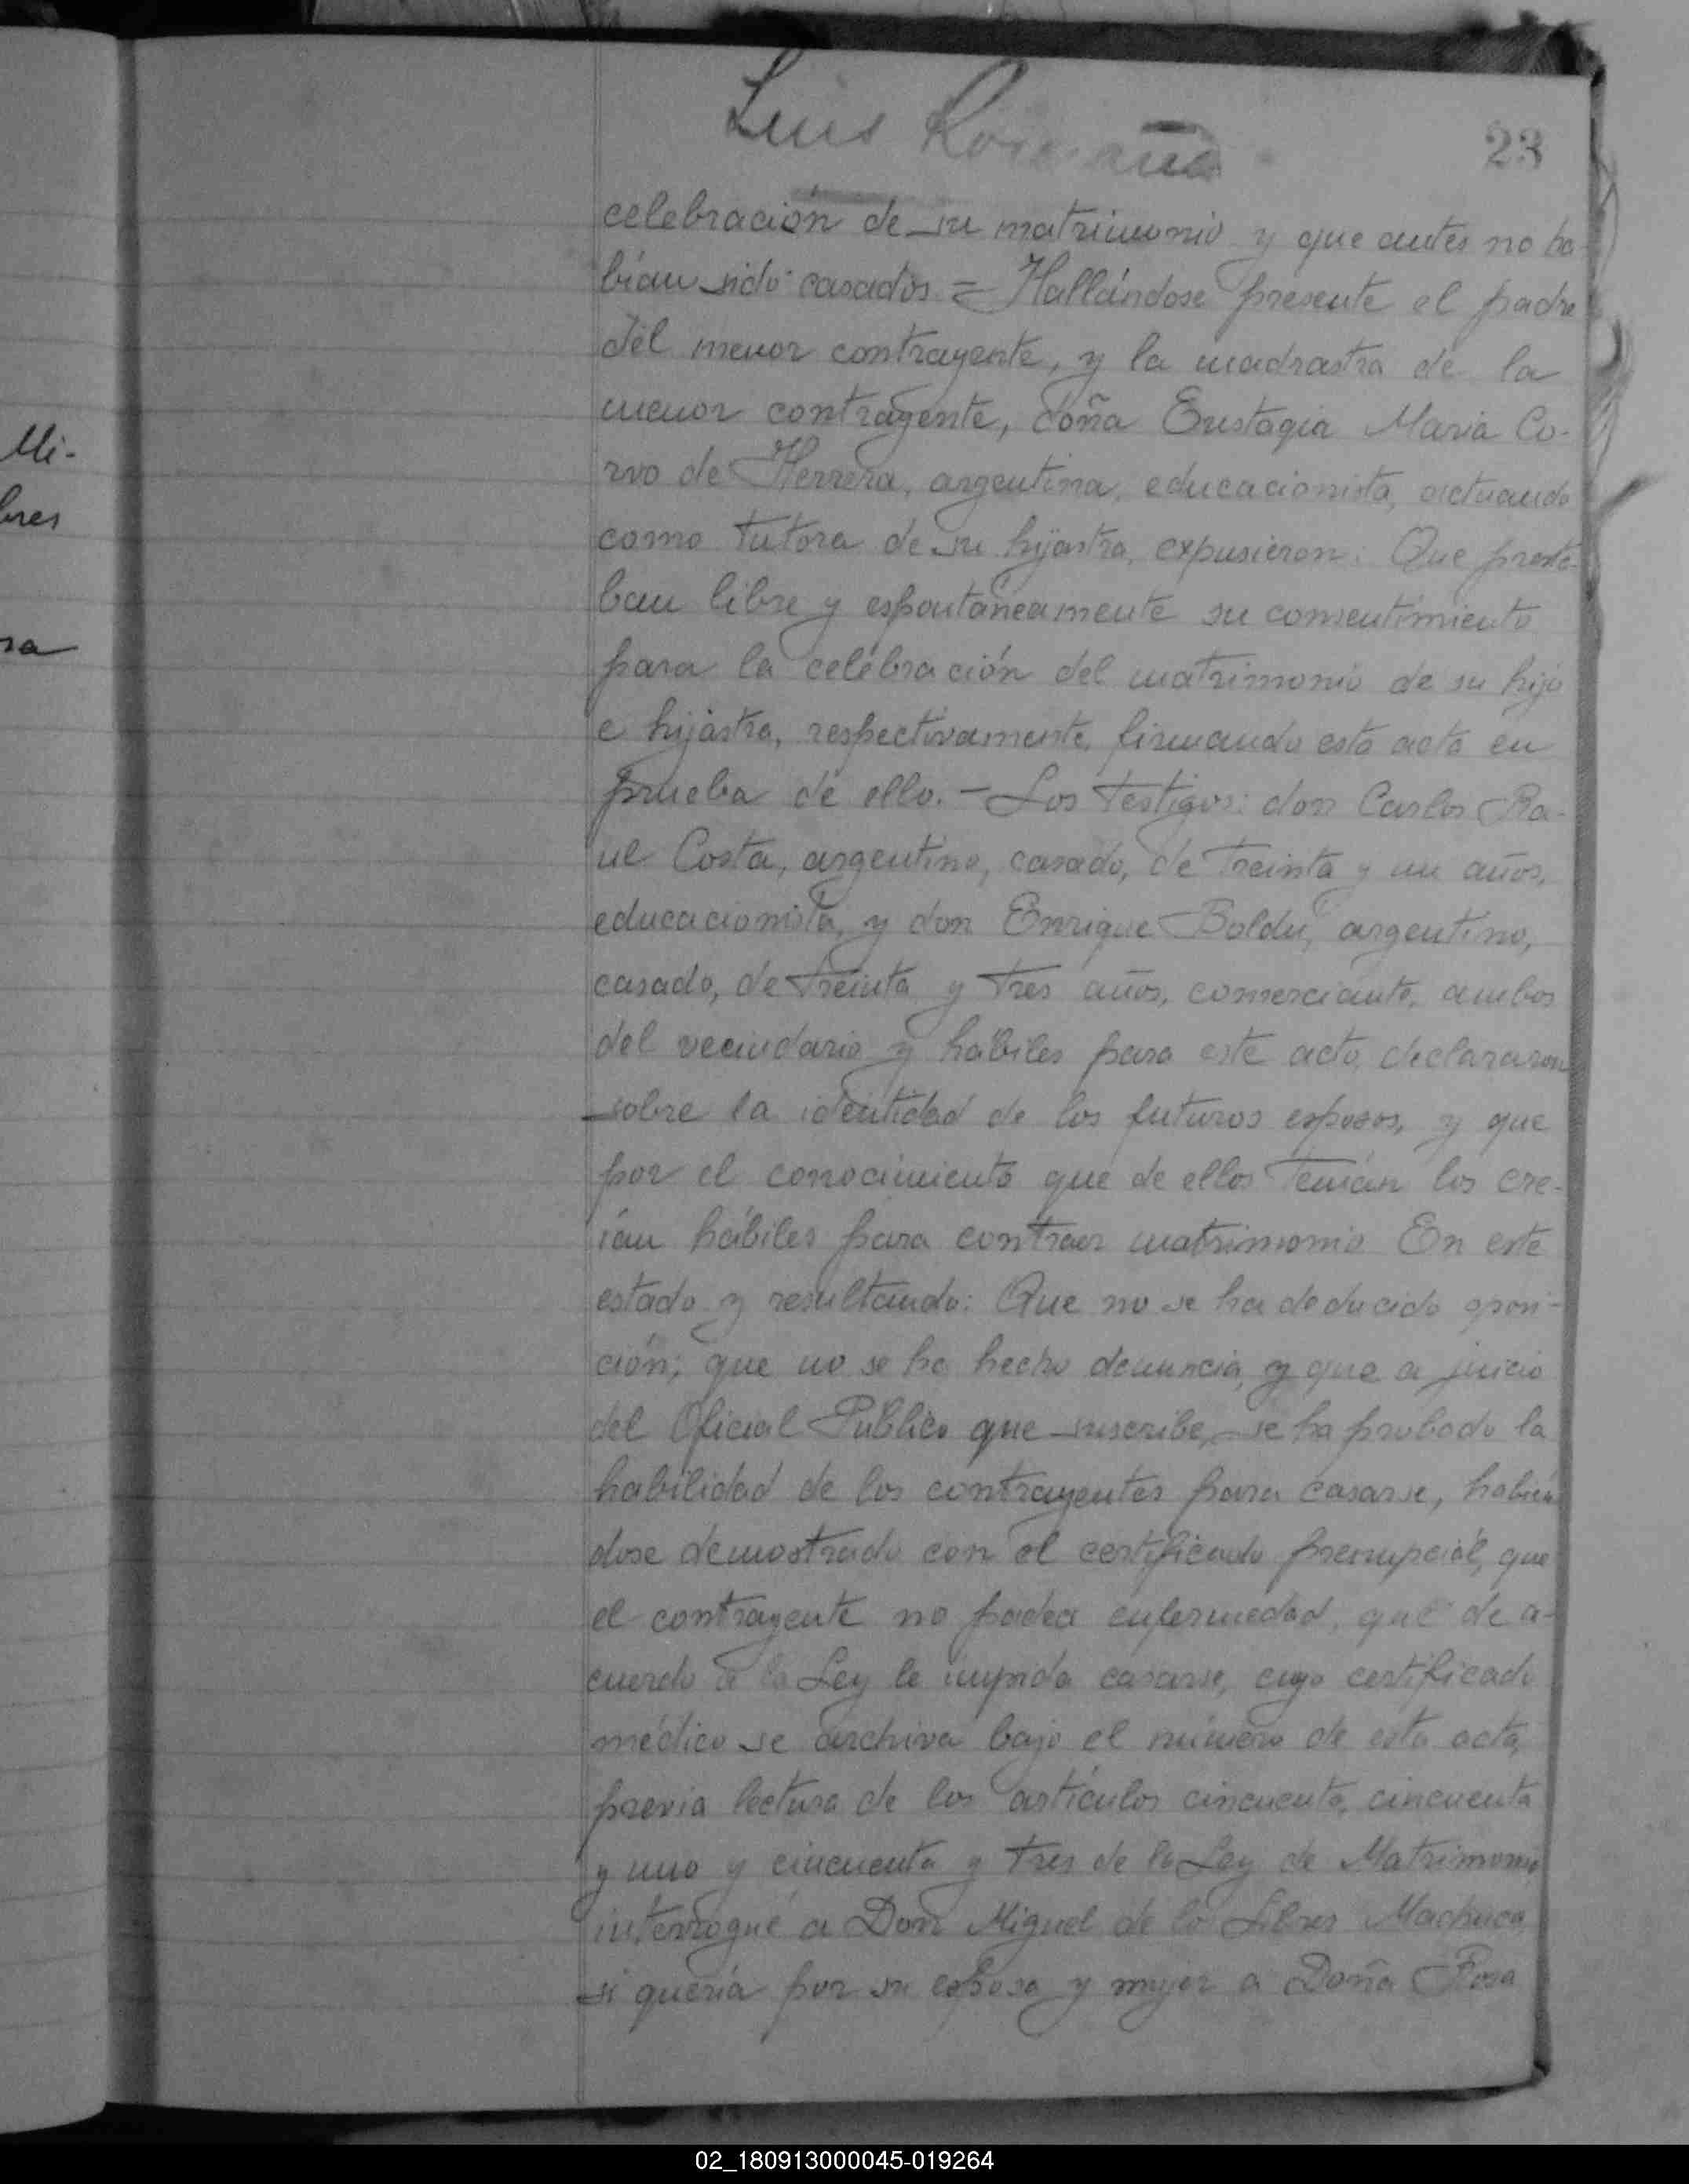 Luis Romaña
23
celebración de su matrimonio y que antes no ha-
bían sido casados = Hallándose presente el padre
del menor contrayente, y la madrastra de la
menor contrayente, doña Eustaqia Maria Co-
rvo de Herrera, argentina, educacionista, actuando
como tutora de su hijastra, expusieron: Que presta-
ban libre y espontáneamente su consentimiento
para la celébración del matrimonio de su hijo
e hijastra, respectivamente, firmando esta acta en
prueba de ello. - Los testigos: don Carlos Ra-
ul Costa, argentino, casado, de treinta y un años,
educacionista, y don Enrique Boldu, argentino,
casado, de treinta y tres años, comerciante, ambos
del vecindario y hábiles para este acto, declararon
sobre la identidad de los futuros esposos, y que
por el conocimiento que de ellos tenían los cre-
ían hábiles para contraer matrimonio En este
estado y resultando: Que no se ha deducido oposi-
ción; que no se ha hecho denuncia, y que a juicio
del Oficial Público que suscribe, se ha probado la
habilidad de los contrayentes para casarse, habién
dose demostrado con el certificado prenupcial, que
el contrayente no padea enfermedad, que de a-
cuerdo a la Ley le impida casarse, cuyo certificado
médico se archiva bajo el número de esta acta,
previa lectura de los artículos cincuenta, cincuenta
y uno y cincuenta y tres de la Ley de Matrimonio,
interrogué a Don Miguel de lo Libres Machuca
si quería por su esposa y mujer a Doña Rosa
Mi-
bres
ra
02_180913000045-019264